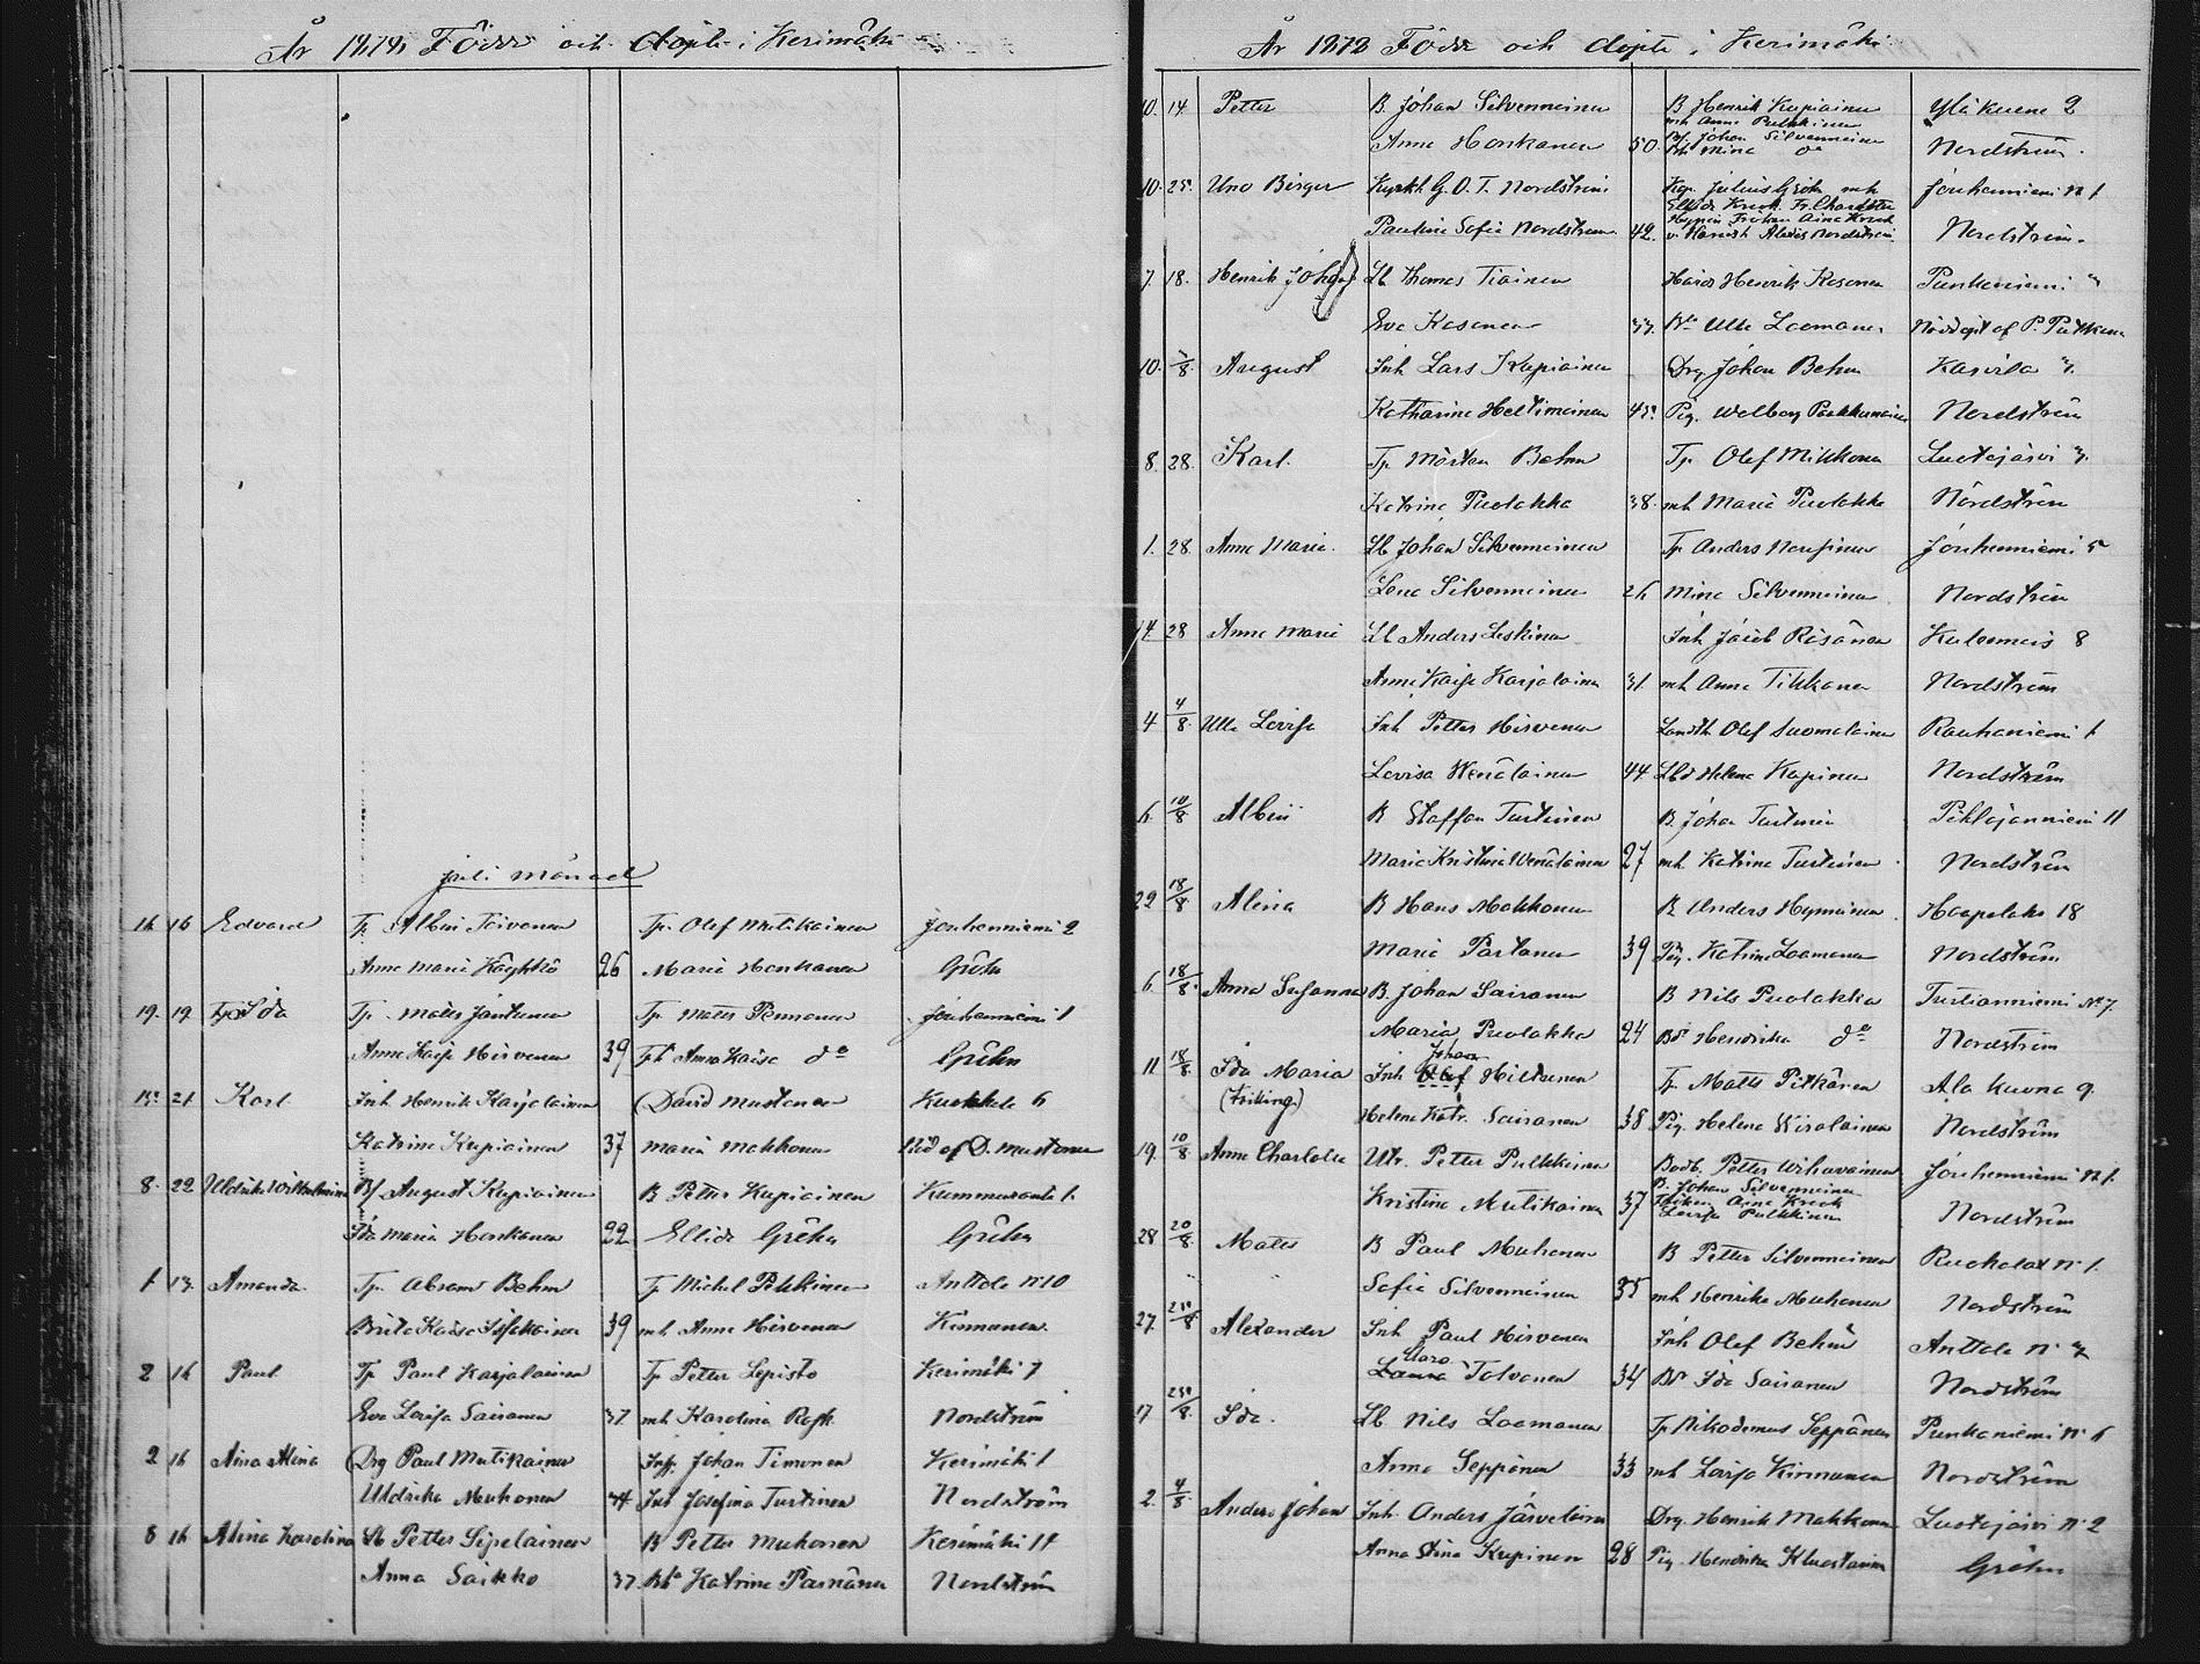 År 1872 Födde och döpte i Kerimäki
juli månad
16 16 Edvard Tp Albin Toivonen Tp. Olof Mutikainen Jouhenniemi 2
Anna Maria Käyhkö 26 Maria Honkanen Gröhn
19. 19 Ida Tp. Mats Jantunen Tp Mats Pennanen Jouhenniemi 1
Anna Kaisa Hirvonen 39 Anna Kaisa do Gröhn
21 Karl Inh Henrik Karjalainen David Mustonen 6
Katrina Kupiainen 37 Maria Makkonen af D. Mustonen
8. 22 Uldrika Wilhelmina Bf August Kupiainen B Petter Kupiainen
Ida Maria Honkanen 22 Ellida Gröhn Gröhn
1 13. Amanda Tp. Abram Behm Tp Michel Pulkkinen Anttola N:10
Brita Kaisa 39 mh Anna Hirvonen Kinnunen
2 16 Paul Tp Paul Karjalainen Tp Petter Lepisto Kerimäki 7
Eva Lovisa Sairanen 37 mh Karolina Nordström
2 16 Aina Alina Drg Paul Mutikainen Johan Timonen Kerimäki 1
Uldrika Muhonen 34 Josefina Turtinen Nordström
8 16 Alina Karolina Lb Petter Sipelainen B Petter Muhonen Kerimäki 14
Anna Saikko 37 Katrina Parnänen Nordström
År 1872 Födde och döpte i Kerimäki
10. 14. Petter B. Johan Silvenneinen B Henrik Kupiainen Ylä kuona 2
mh Anna Pulkkinen
Anna Honkanen 50. Bf. Johan Silvenneinen Nordström.
Mina do
10. 25. Uno Birger Kyrkh G. O. T. Nordström Kpn Julius Gröhn mh Jouhenniemi N 1
Ellida Krook. Fr. Charlotte
Fröken Aina Krook
Paulina Sofia Nordström 42. Alexis Nordström Nordström.
7. 18. Henrik Johan Lb Thomas Tiainen Henrik Kosonen Punkaniemi
Eva Kosonen 33. Ulla Loomanen Nöddöpt af P. Putkonen
10. 3/8. August Inh Lars Kupiainen Drg Johan Behm
Katharina 45. Pig. Walborg Nordström
8. 28. Karl. Tp Mårten Behm Tp Olof Mikkonen Luotojärvi 3.
Katrina Puolakka 38. mh Maria Puolakka Nordström
1. 28. Anna Maria. Lb Johan Silvenneinen Tp Anders Nousiainen Jouhenniemi 5
Lena Silvenneinen 26 Mina Silvenneinen Nordström
14. 28 Anna Maria Lb Anders Leskinen Inh Jacob Räsänen Kulennois 8
Anna Kaisa Karjalainen 31. mh Anna Tikkanen Nordström
4 4/8. Ulla Lovisa Inh Petter Hirvonen Landth Olof Suomalainen Rauhaniemi 1
Lovisa Wenäläinen 44 Helena Kapinen Nordström
6. 10/8 Albin B Staffan Turtinen B. Johan Turtinen Pihlajaniemi 11
Maria Kristina Wenäläinen 27 mh Katrina Turtinen Nordström
22 18/8 Alina B Hans Makkonen B Anders Hynninen Haapalaks 18
Maria Partanen 39 Pig. Katrina Loomanen Nordström
6 18/8. Anna Susanna B. Johan Sairanen B Nils Puolakka No 7.
Maria Puolakka 24 Bdr Hendrika do Nordström
Johan
11 18/8. Ida Maria Inh Olof Hiltunen Tp. Matts Pitkänen Ala kuona 9.
(trilling) Helena Katr. Sairanen 38 Pig. Helena Wirolainen Nordström
19. 10/8 Anna Charlotta Utr. Petter Pulkkinen Bodb. Petter Wihavainen Jouhenniemi N 1.
B. Johan Silvenneinen
Kristina Mutikainen 37 Fröken Aina Krook Nordström
Lovisa Pulkkinen
28 20/8. Matts B Paul Muhonen B Petter Silvenneinen Ruokolax N:1.
Sofia Silvenneinen 35 mh Henrika Muhonen Nordström
27. 25/8. Alexander Inh Paul Hirvonen Inh Olof Behm Anttola N:
Clara
Laura Tolvanen 34 Bdr Ida Sairanen Nordström
17 25/8. Ida. Lb. Nils Loomanen Tp Nikodemus Seppänen Punkaniemi N: 6
Anna Seppänen 33 mh Lovisa Kinnunen Nordström
2. 4/8. Anders Johan Inh. Anders Järveläinen Drg. Henrik Makkonen Luotojärvi N:2
Anna Stina Kupinen 28 Pig. Hendrika Gröhn